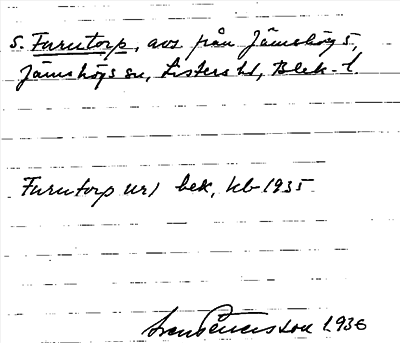 S. Furutorp, avs från Jämshög 5,
Jämshögs sn, Listers hd, Blek. l.
Furutorp url bek, kb 1935
Sven Benson 1936